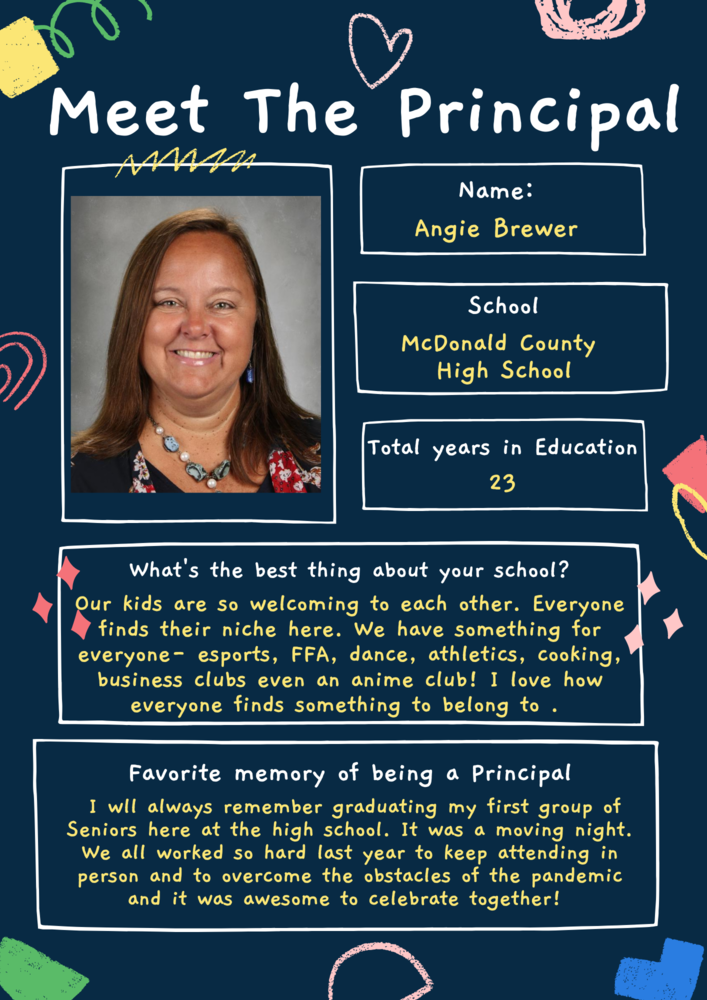 Meet The Principal
Name:
Angie Brewer
School
McDonald County
High School
Total years in Education
23
What's the best thing about your school?
Our kids are so welcoming to each other. Everyone
finds their niche here. We have something for
everyone- esports, FFA, dance, athletics, cooking,
business clubs even an anime club! I love how
everyone finds something to belong to .
Favorite memory of being a Principal
I wll always remember graduating my first group of
Seniors here at the high school. It was a moving night.
We all worked so hard last year to keep attending in
person and to overcome the obstacles of the pandemic
and it was awesome to celebrate together!